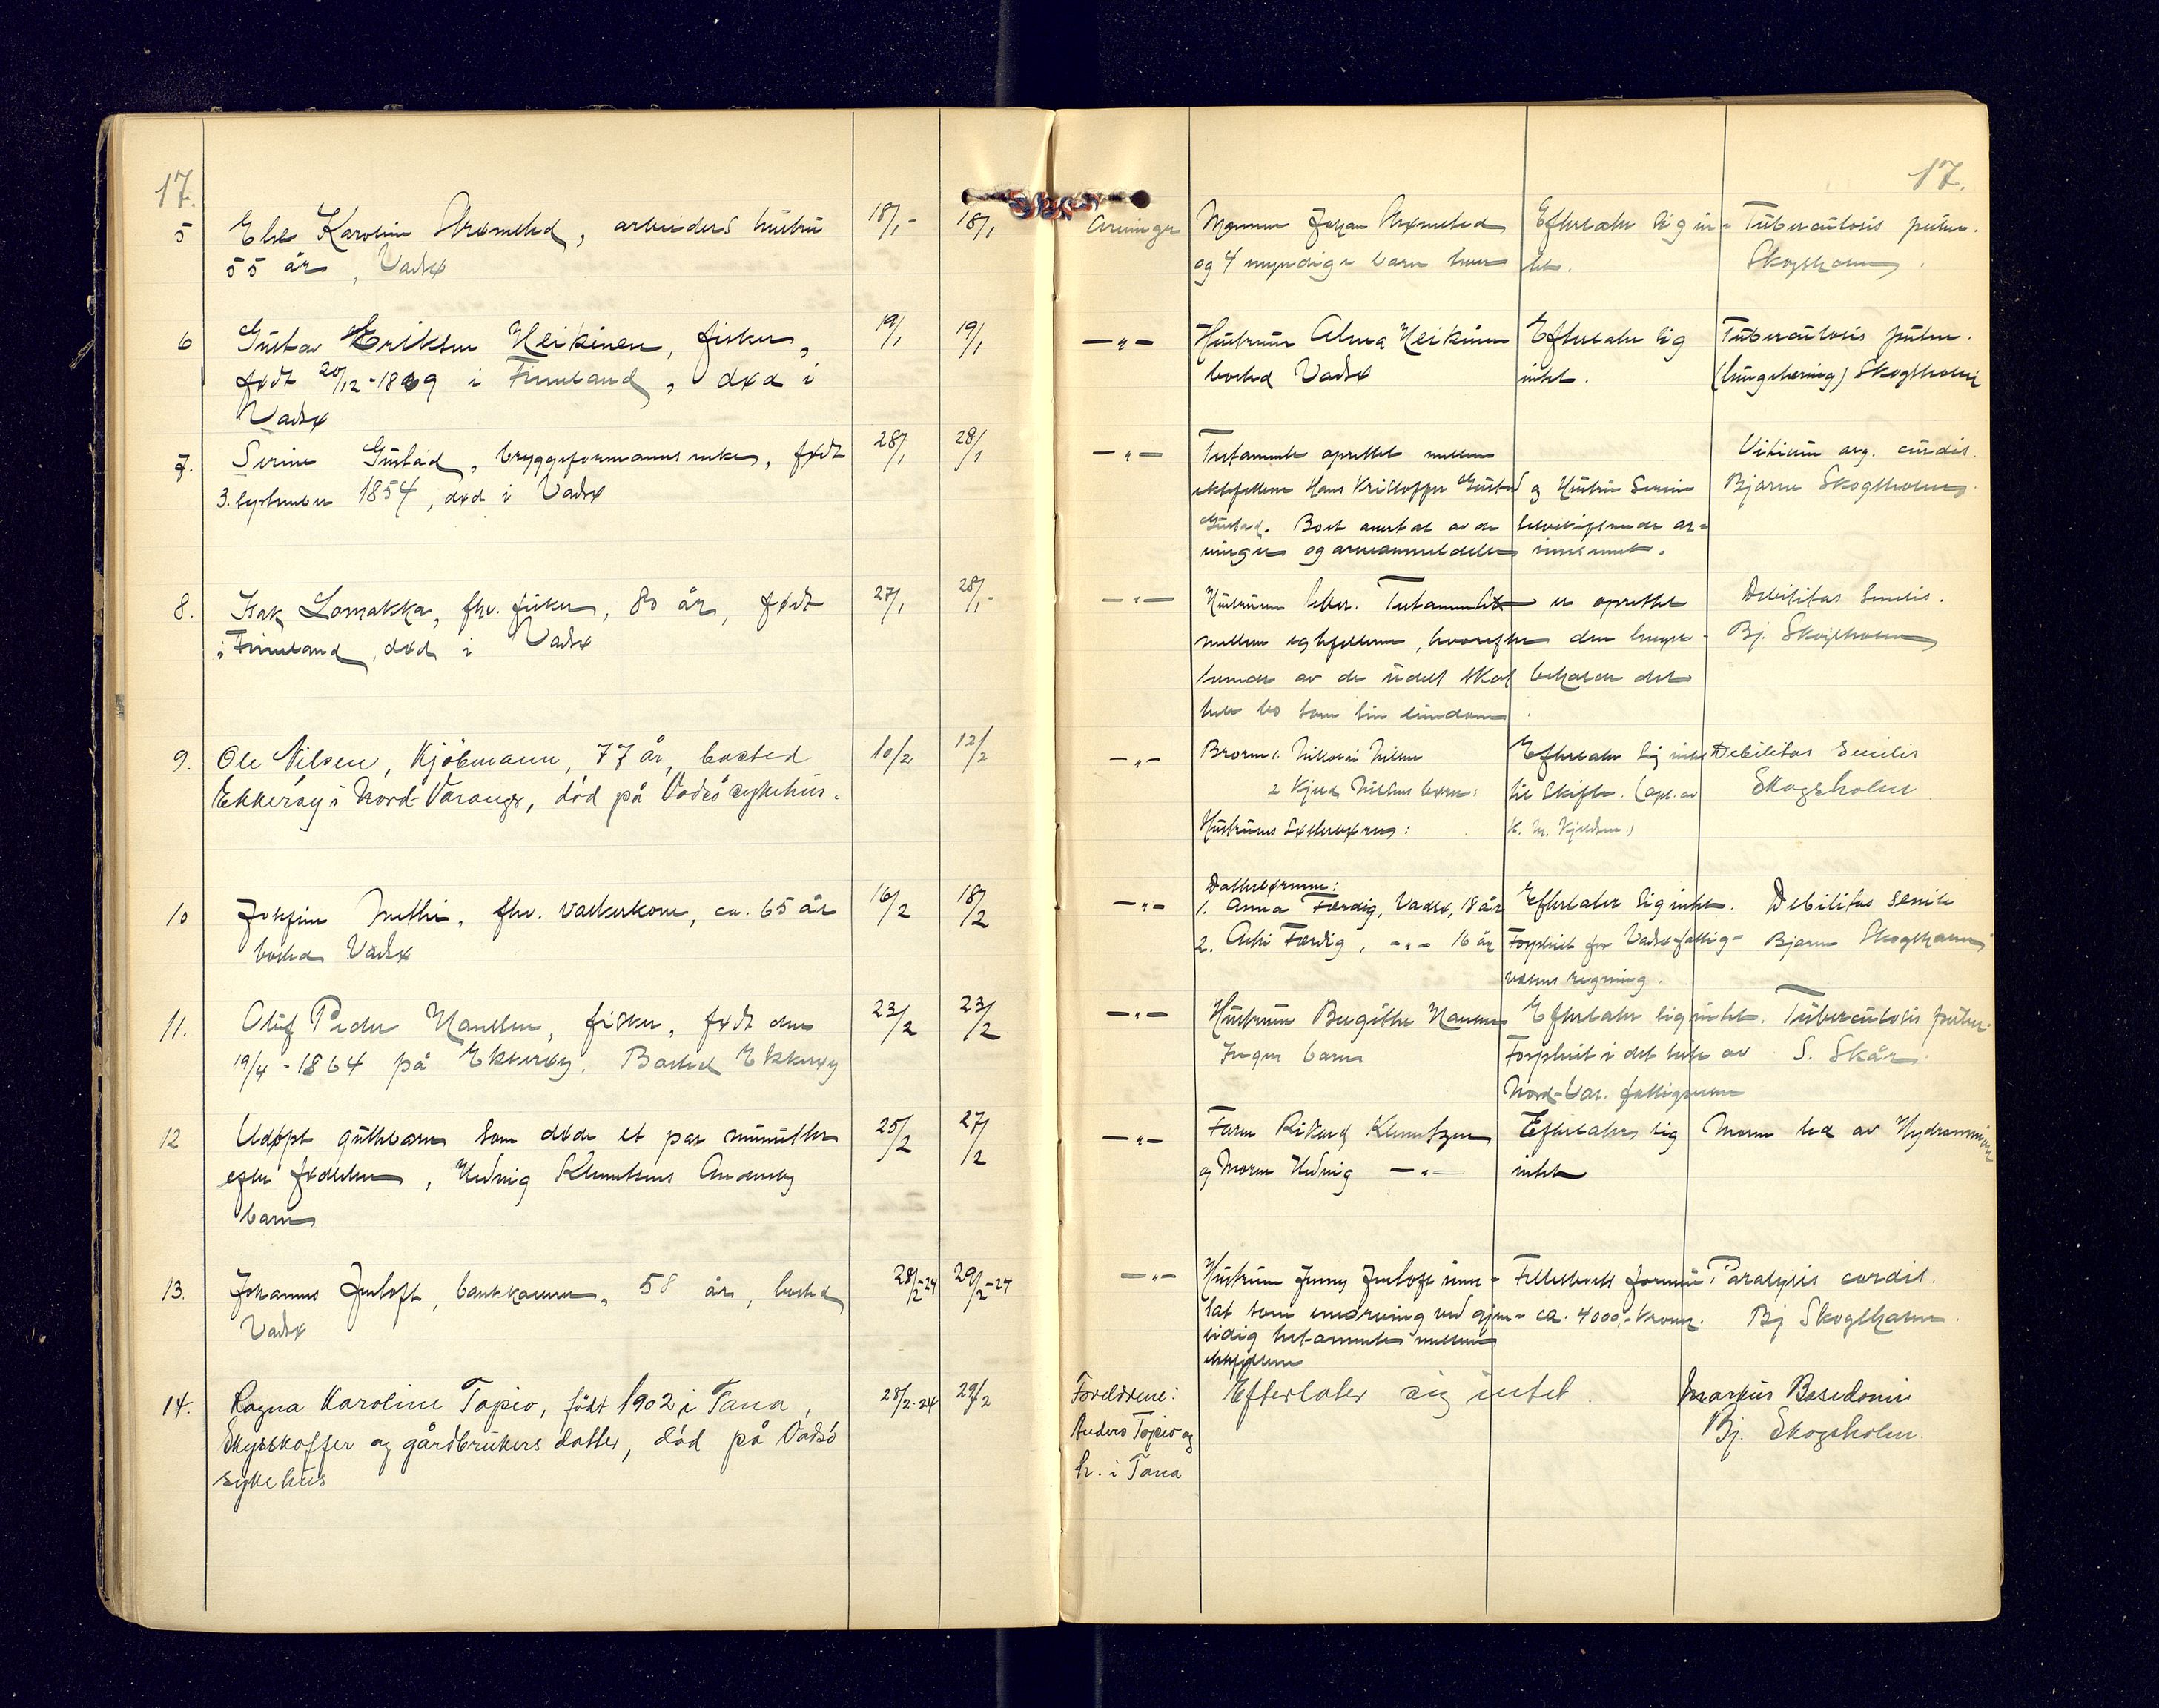 17.
17.
5 Else Karoline Strømsted, arbeiders hustru 18/1 - 18/1 Arvinger Mannen Johan Strømsted Efterlater sig in= Tuberculosis pulm.
55 år, Vadsø og 4 myndige barn tet. Skogsholm.
6 Gustav Eriksen Heikinen, fisker, 19/1 19/1 —"— Hustruen Alma Heikinen Efterlater sig Tuberculosis pulm.
født 20/12-1869 i Finnland, død i bosted Vadsø intet. (lungetæring) Skogsholm
Vadsø
7. Serine Gustad, bryggeformanns enke, født 28/1 28/1 —"— Testamente oprettet mellem Vitium org. cordis.
3. september 1854, død i Vadsø ektefellene Hans Kristoffer Gustad og Hustru Serine Bjarne Skogsholm
Gustad. Boet overtat av de selvskiftende ar=
vinger og arveanmeldelse innsendt.
8. Isak Lomakka, fhv. fisker, 80 år, født 27/1 28/1 - —"— Hustruen lever. Testamente er oprettet Debilitas senilis.
i Finnland, død i Vadsø mellem egtefellene, hvorefter den lengst= Bj. Skogsholm
levende av de uskift skal beholde det
hele bo som sin eiendom.
9. Ole Nilsen, Kjöbmann, 77 år, bosted 10/2 12/2 —"— Broren: Nilsen Efterlater sig intet Debilitas senilis
Ekkeröy i Nord-Varanger, död på Vadsö sykehus. 2 Nilsens børn: til Skifte. (opl. av Skogsholm
Hustruens Søsterbørn: K. M. Kjeldsen.)
10 Josefine Methi, fhv. vaskekone, ca. 65 år 16/2 18/2 —"— Datterbørnene:
bosted Vadsø 1. Anna Færdig, Vadsø, 18 år Efterlater sig intet. Debilitas senile
2. Færdig, —"— 16 år Forpleiet for Vadsø fattig= Bjarne Skogsholm
vesens regning.
11. Oluf Peder Hansen, fisker, født den 23/2 23/2 —"— Hustruen Birgitte Hansen Efterlater sig intet. Tuberculosis pulm.
19/4 - 1864 på Ekkerøy. Bosted Ekkerøy Ingen barn Forpleiet i det hele av S. Skår.
Nord-Var. fattigvesen
12 Udøpt guttebarn som døde et par minutter 25/2 27/2 —"— Faren Rikard Klemetsen Efterlater sig Moren led av Hydramnion
efter fødselen, Hedvig Klemetsens Andersby og Moren Hedvig —"— intet
barn
13. Johannes Jentoft, bankkasserer, 58 år, bosted 28/2-24 29/2-24 —"— Hustruen Jenny Jentoft inn= Fellesboets formue Paralysis cordis.
Vadsø sat som enearving ved gjen= ca. 4000,- kroner. Bj Skogsholm
sidig testamente mellem
ektefellene
14. Ragna Karoline Topio, födt 1902 i Tana, 28/2-24 29/2 Foreldrene: Efterlater sig intet. Morbus Basedowii
Skysskaffer og gårdbrukers datter, död på Vadsö Anders Topio og Bj. Skogsholm.
sykehus h. i Tana